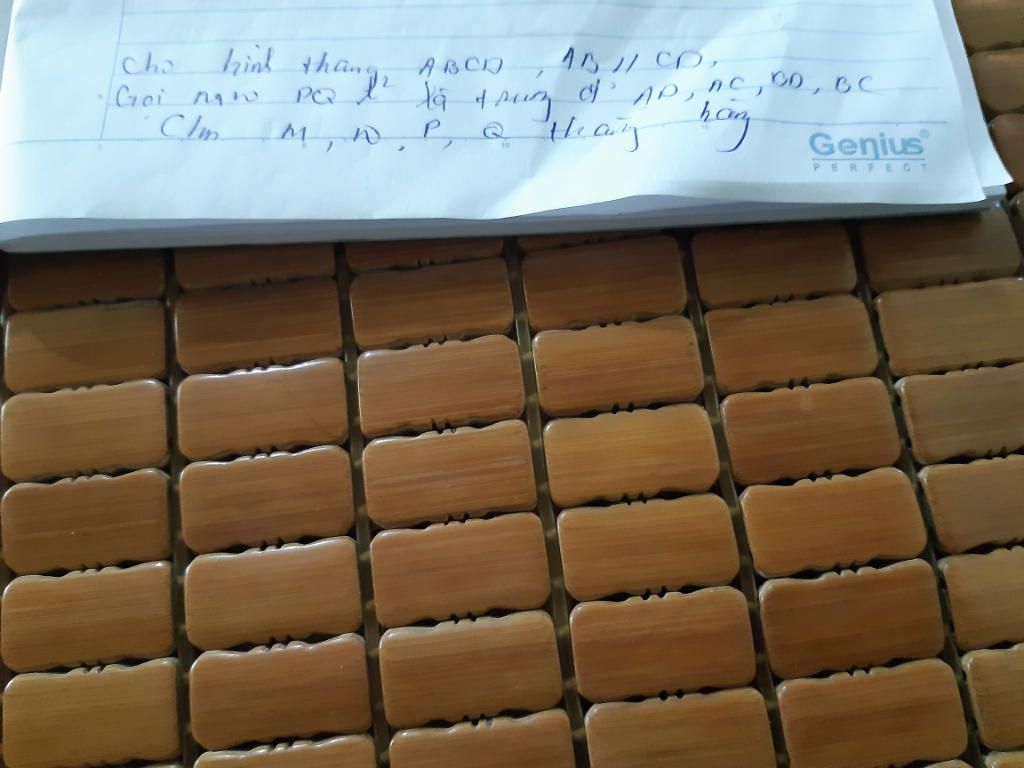 Cho hình thang ABCD, AB // CD,
Gọi M, N, P, Q là trung đ' AD, AC, BD, BC
Clm M, N, P, Q thẳng hàng
Genius®
PERFECT